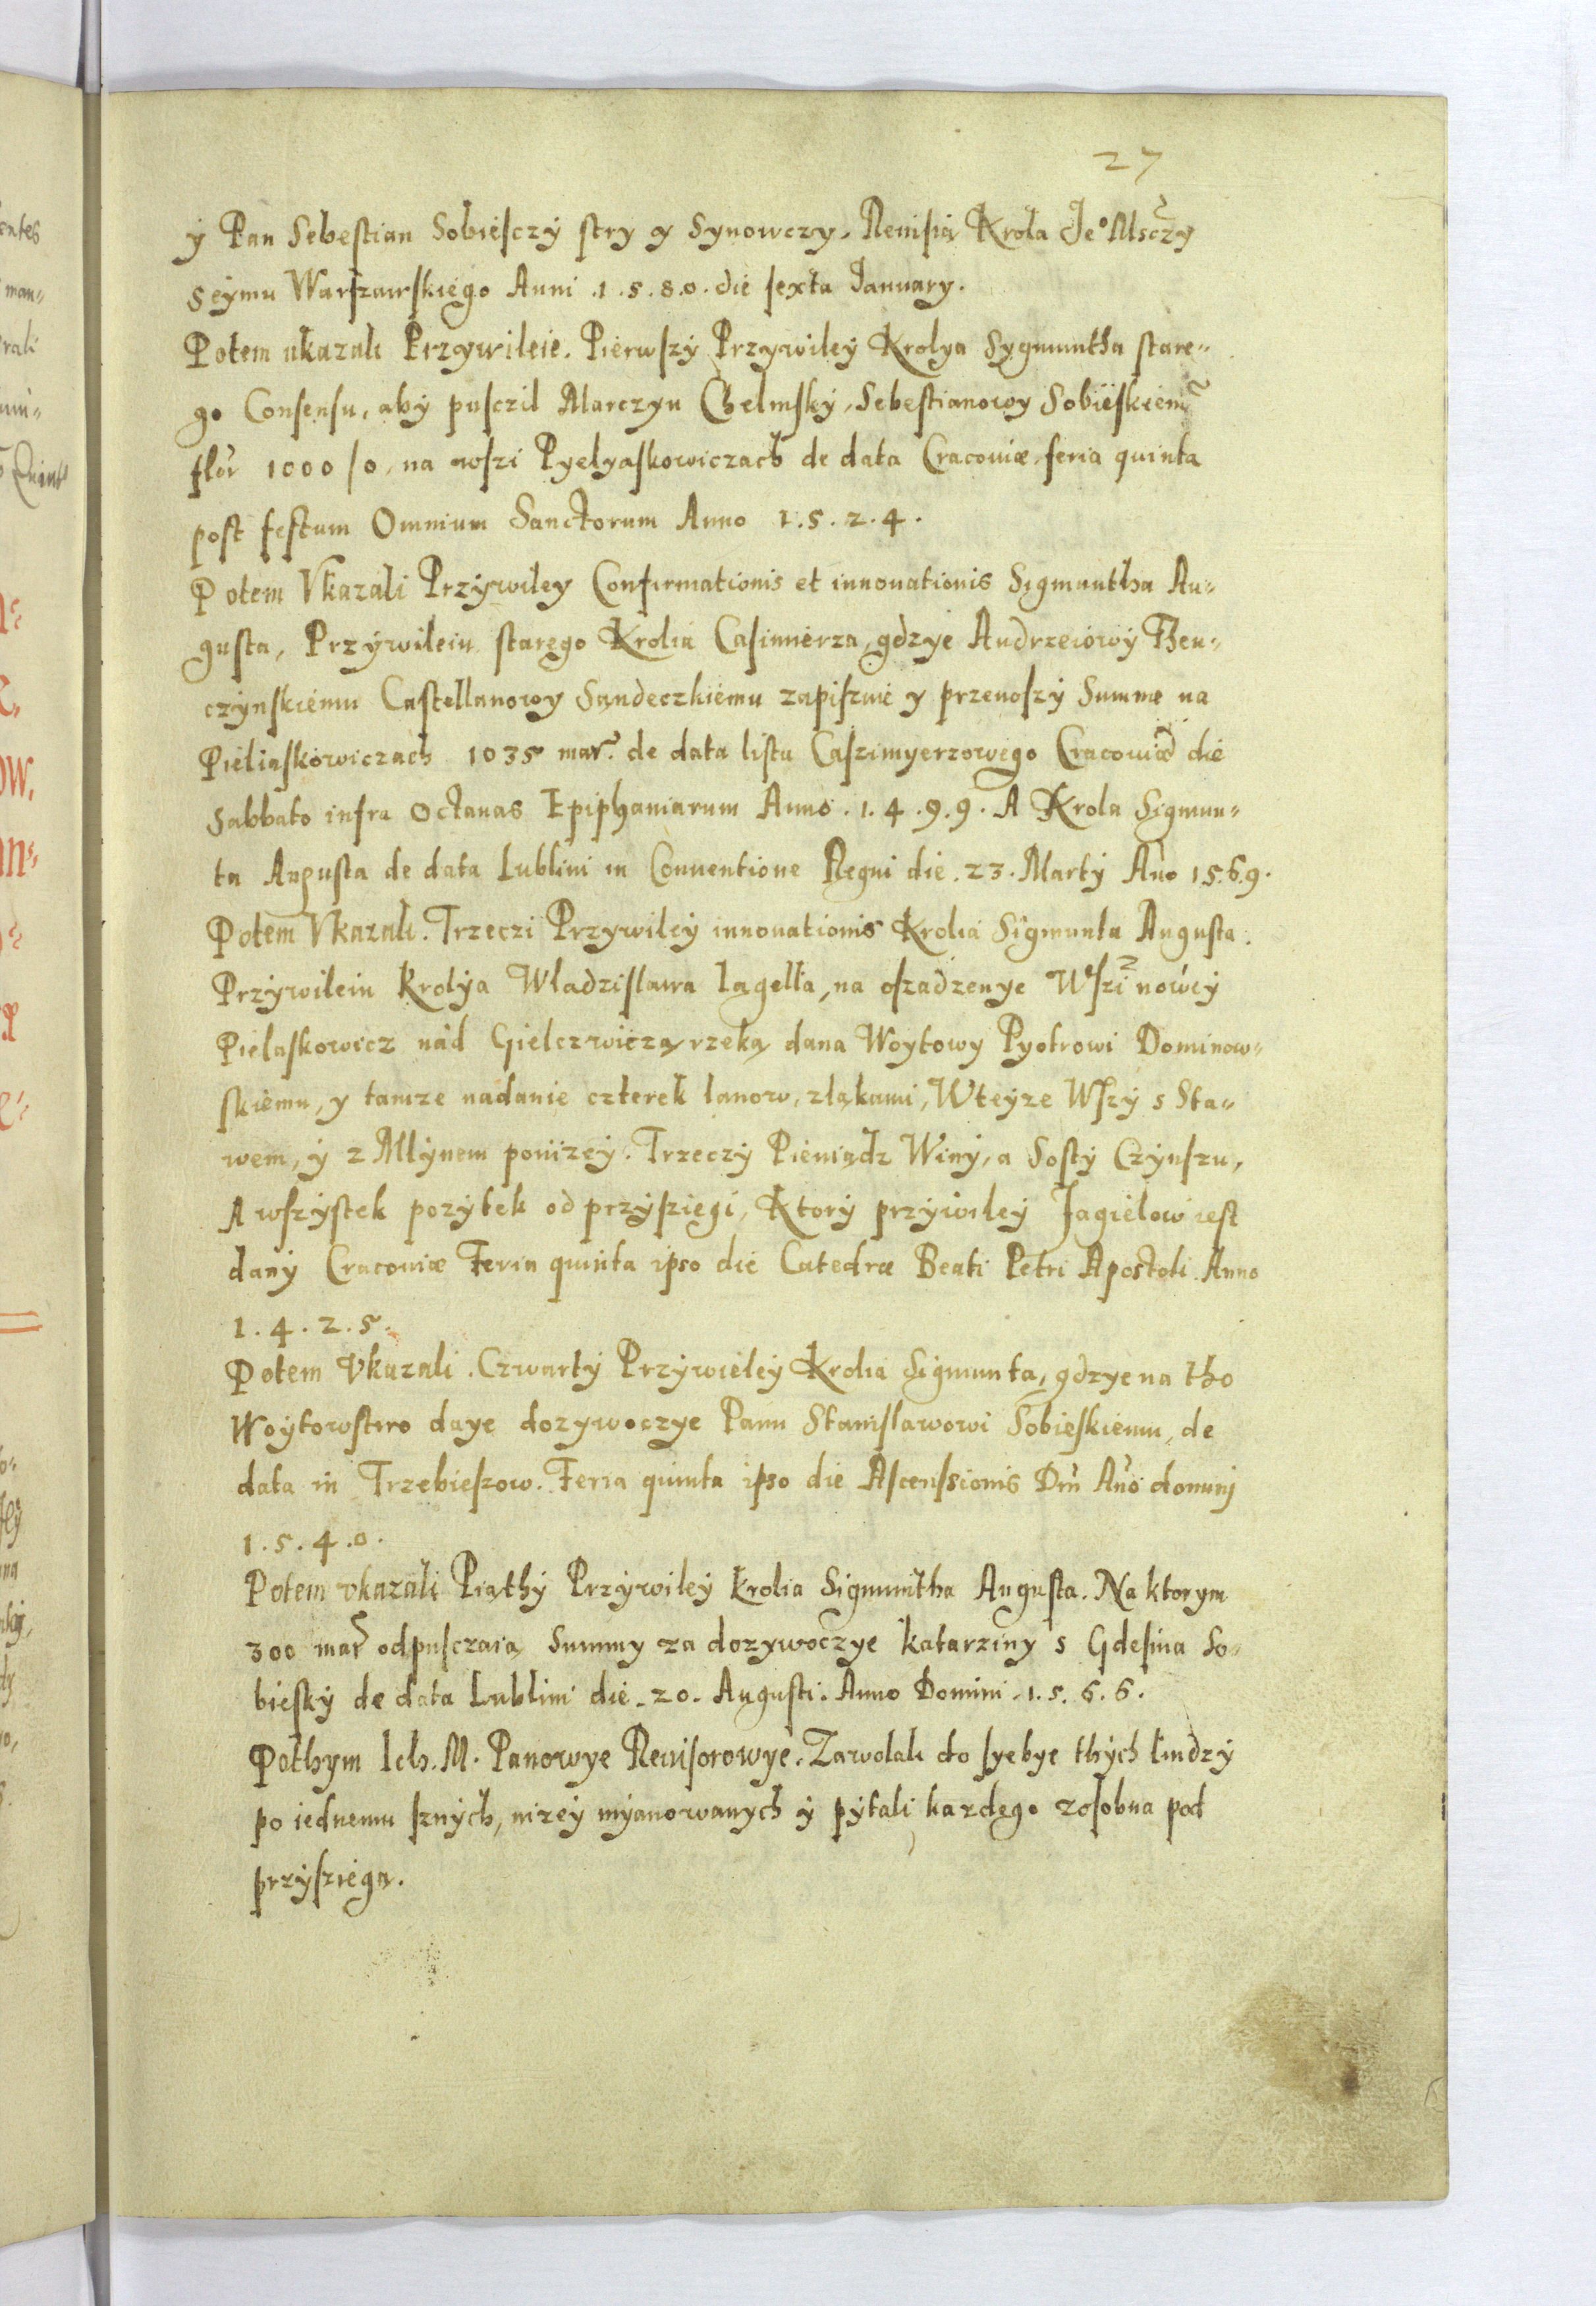 27
ÿ Pan Sebestian Sobiesczÿ stry y Synowczy, Reuisią Krola Jeº Msczy
Seÿmu Warszawskiego Anni .1.5.8.0. die sexta January.
Potem ukazali Przywileie. Pierwszÿ Przywileÿ Krolya Sygmuntha stare=
go Consensu, abÿ pusczil Marczyn Chelmskÿ, Sebestianowy Sobieskiemu
flor 1000 /0, na wszi Pyelyaskowiczach de data Cracouiæ, feria quinta
post festum Omnium Sanctorum Anno 1.5.2.4.
Potem Vkazali Przÿwiley Confirmationis et innouationis Sigmuntha Au=
gusta, Przÿwileiu starego Krolia Casimierza, gdzÿe Andrzeiowÿ Then=
czÿnskiemu Castellanowy Sandeczkiemu zapiszuie y przenoszÿ Summe na
Pieliaskowiczach 1035 mar. de data listu Caszimyerzowego Cracouiæ die
Sabbato infra Octauas Epiphaniarum Anno .1.4.9.9. A Krola Sigmun=
ta Augusta de data Lublini in Conuentione Regni die .23. Martÿ Año 1.5.6.9.
Potem Vkazali. Trzeczi Przywileÿ innouationis Krolia Sigmunta Augusta.
Przÿwileiu Krolÿa Wladzislawa Iagella, na oszadzenye Wszi noweÿ
Pielaskowicz nad Gielczwiczą rzeką dana Woÿtowy Pyotrowi Dominow=
skiemu, y tamze nadanie czterek lanow, zląkami, Wteÿze Wszÿ s Sta=
wem, ÿ z Mlÿnem ponizeÿ. Trzeczÿ Pieniądz Winÿ, a Sostÿ Czÿnszu,
A wszÿstek pozÿtek od przÿsziegi, Ktorÿ przÿwileÿ Jagielow iest
danÿ Cracouiæ Feria quinta ipso die Catedræ Beati Petri Apostoli Anno
1.4.2.5.
Potem Vkazali. Czwartÿ Przÿwieleÿ Krolia Sigmunta, gdzye na tho
Woÿtowstwo daye dozywoczye Panu Stanislawowi Sobieskiemu, de
data in Trzebieszow. Feria quinta ipso die Ascenssionis Dni Año dominj
1.5.4.0.
Potem vkazali Piąthÿ Przÿwileÿ Krolia Sigmuntha Augusta. Na ktorym
300 mar odpusczaią Summy za dozywoczye Katarziny s Gdesina So=
bieskÿ de data Lublini die .20. Augusti. Anno Domini .1.5.6.6.
Pothym Ich. M. Panowye Reuisorowye. Zawolali do syebye thych ludzÿ
po iednemu sznÿch, nizeÿ mÿanowanych ÿ pÿtali kazdego zosobna pod
przÿszięgą.